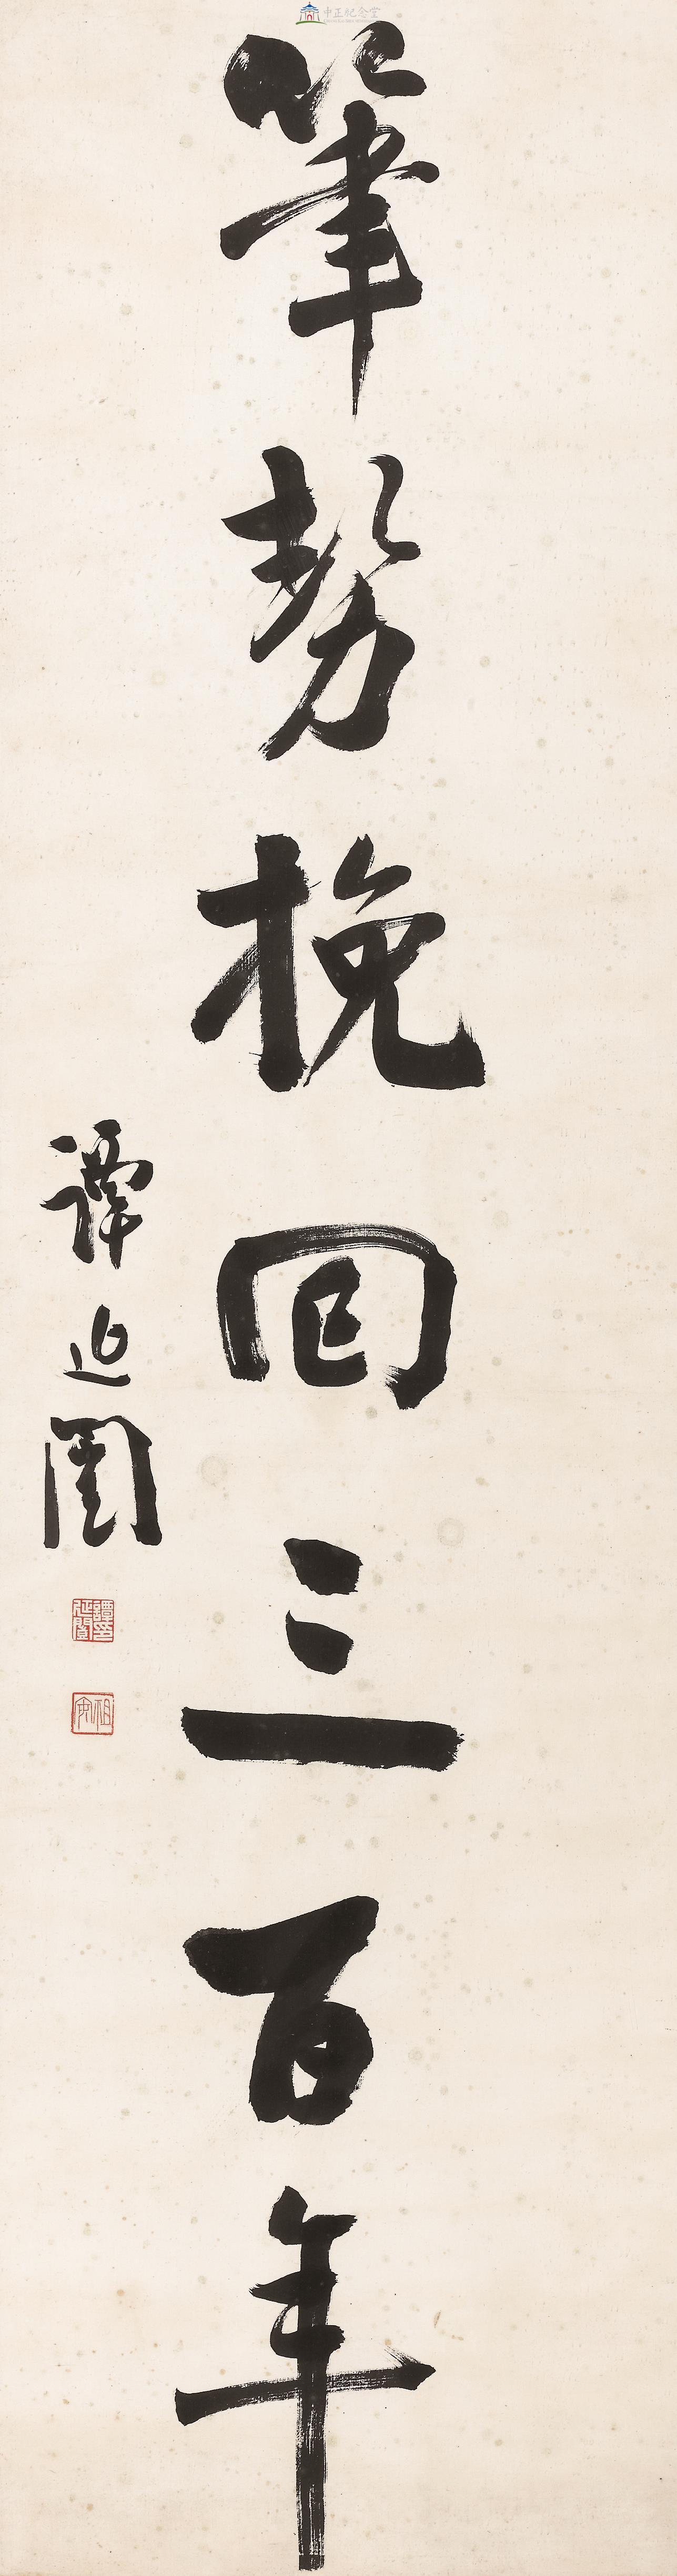 中正紀念堂
筆勢挽回三百年
譚延闓
譚延闓印
祖安